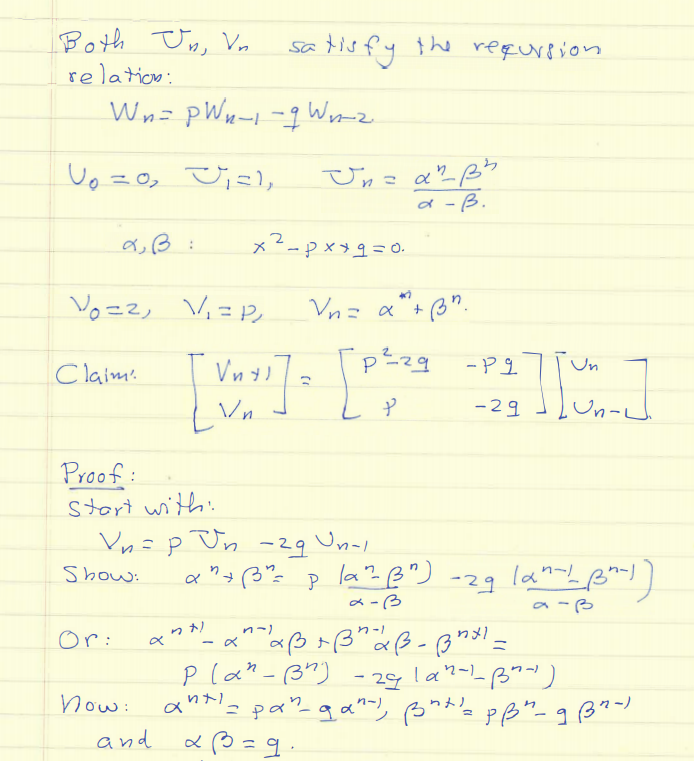 Both Un, Vn satisfy the recursion
relation:
Wn = pWn-1 - qWn-2
U0 = 0, U1 = 1, Un = (α^n - β^n)/(α - β).
α, β : x^2 - px + q = 0.
V0 = 2, V1 = p, Vn = α^n + β^n.
Claim: [Vn+1; Vn] = [p^2-2q -pq; p -2q] [Un; Un-1]
Proof:
Start with:
Vn = p Un - 2q Un-1
Show: α^n + β^n = p (α^n - β^n)/(α - β) - 2q (α^n-1 - β^n-1)/(α - β)
Or: α^n+1 - α^n-1 αβ + β^n-1 αβ - β^n+1 =
p (α^n - β^n) - 2q (α^n-1 - β^n-1)
Now: α^n+1 = pα^n - qα^n-1, β^n+1 = pβ^n - qβ^n-1
and αβ = q.